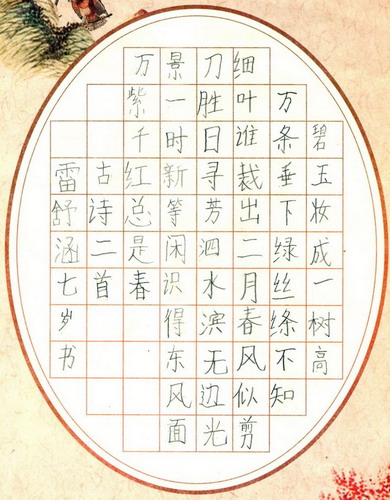 碧玉妆成一树高
万条垂下绿丝绦不知
细叶谁裁出二月春风似剪
刀胜日寻芳泗水滨无边光
景一时新等闲识得东风面
万紫千红总是春
古诗二首
雷舒涵七岁书